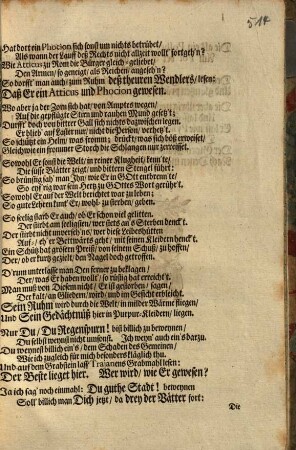 514
Hat dort ein Phocion sich sonst um nichts betrübet/
Als wann der Lauff deß Rechts nicht allzeit wollt' fortgeh'n?
Wie Atticus zu Rom die Bürger gleich-geliebet/
Den Armen/ so geneigt/ als Reichen/ angeseh'n?
So dörfft' man auch/ zum Ruhm deß theuren Wendlers/ lesen:
Daß Er ein Atticus und Phocion gewesen.
Wo aber ja der Zorn sich hat/ von Amptes wegen/
Auf die gespitzte Stirn und rauhen Mund gesetz't;
Durfft' doch von bitter Gall sich nichts dazwischen legen.
Er blieb' auf Laster nur/ nicht die Person/ verhetz't.
So schüpt ein Helm/ was fromm; drückt/ was sich böß erweiset/
Gleichwie ein frommer Storch die Schlangen nur zerreisset.
Sowohl Er sonst die Welt/ in reiner Klugheit/ kenn'te/
Die süsse Blätter zeigt/ und bittern Stengel führt:
So brünstig sah' man Ihn/ wie Er in GOtt entbrenn'te/
So eyf'rig war sein Hertz zu GOttes Wort gerühr't.
So wohl Er auf der Welt berichtet war zu leben;
So gute Lehren kunt' Er/ wohl-zu sterben/ geben.
So seelig starb Er auch/ ob Er schon viel gelitten.
Der stirbt am seeligsten/ wer stets an's Sterben denck't.
Der stirbt nicht unverseh'ns/ vor dieß Leibeshütten
Auf/ eh' er Bettwärts geht/ mit seinen Kleidern henck't.
Ein Schütz hat größten Preiß/ von seinem Schuß/ zu hoffen/
Der/ ob er kurtz gezielt/ den Nagel doch getroffen.
D'rum unterlasse man Den ferner zu beklagen/
Der/ was Er haben wollt'/ so rüstig hat erreich't.
Man muß von Diesem nicht/ Er ist gestorben/ sagen/
Der kalt/ an Gliedern/ wird/ und im Gesicht erbleicht.
Sein Ruhm wird durch die Welt/ in müsser Wärme fliegen/
Und Sein Gedächtnüß hier in Purpur-Kleidern/ liegen.
Nur Du/ Du Regenspurg! bist billich zu beweynen/
Du selbst weynst nicht umsonst. Ich weyn' auch ein's darzu.
Du weynst billich ein's/ dem Schaden des Gemeinen/
Wie ich zugleich für mich besonders kläglich thu.
Und auf dem Grabstein lass Trajanens Grabmahl lesen:
Der Beste lieget hier. Wer wird/ wie Er gewesen?
Ja ich sag' noch einmahl: Du guthe Stadt! beweynen
Soll billich man Dich jetzt/ da drey der Vätter fort:
Die